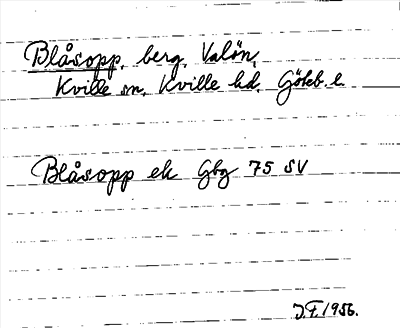 Blåsopp, berg, Valön,
Kville sn, Kville hd. Göteb. l.
Blåsopp ek Gbg 75 SV
J.F. 1956.